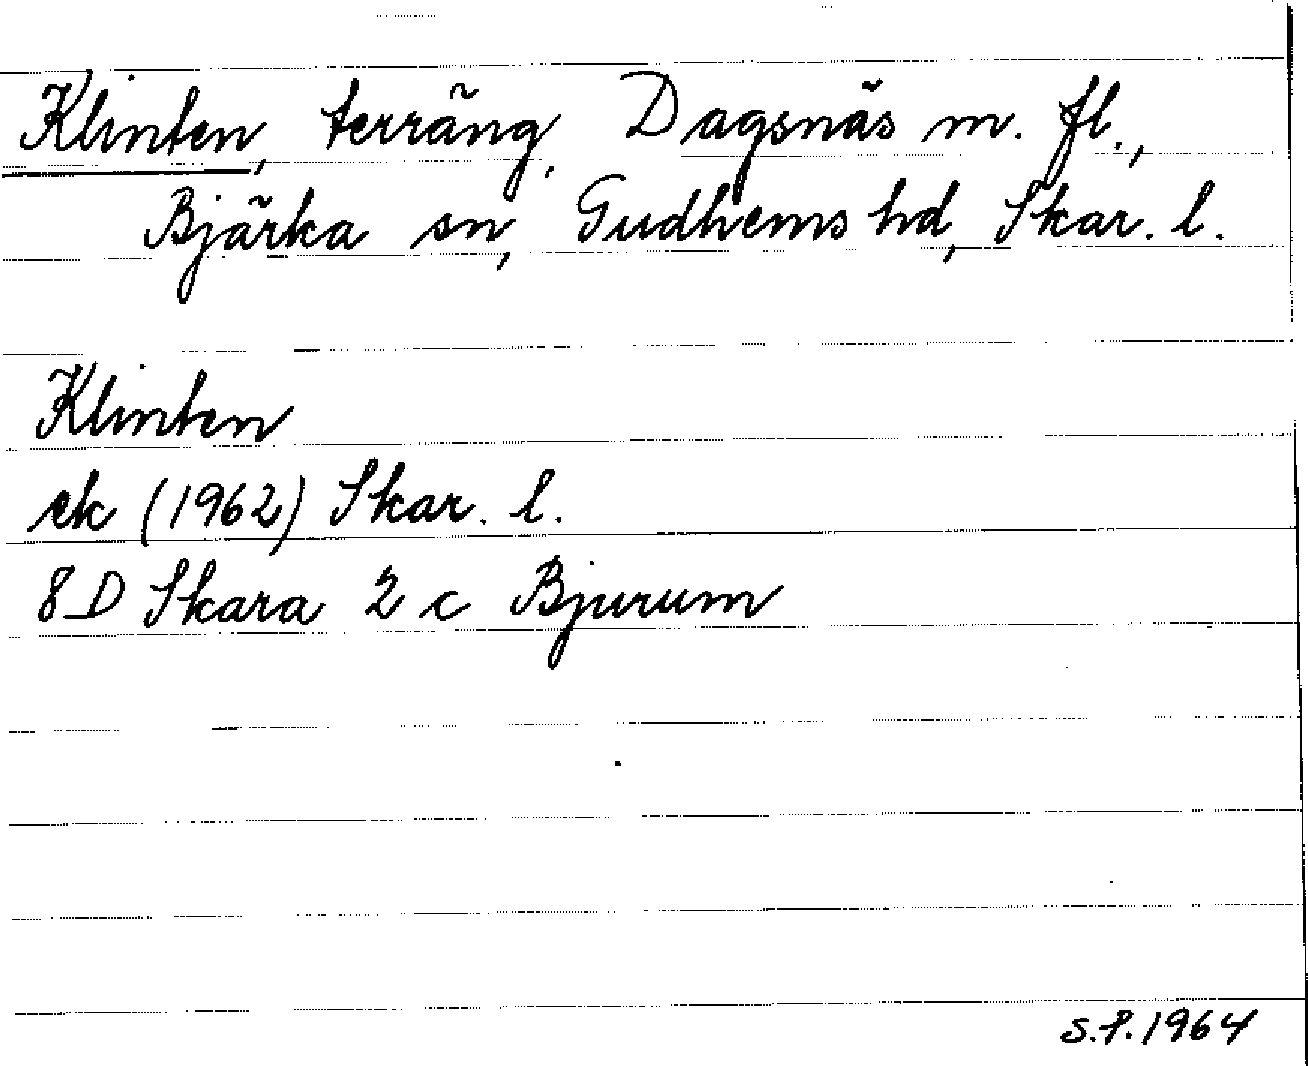 Klinten, terräng, Dagsnäs m. fl.,
Bjärka sn, Gudhems hd, Skar. l.
Klinten
ek (1962) Skar. l.
8D Skara 2 c Bjurum
S.P. 1964